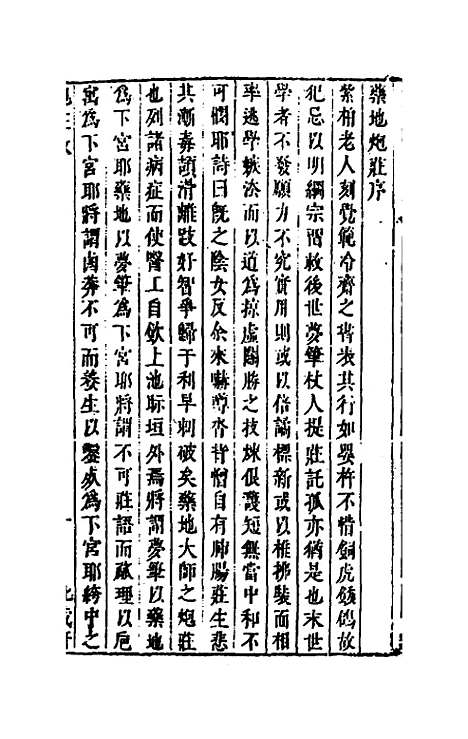 藥地炮莊序
紫柏老人刻覺範冷齋之書表其行如嬰杵不惜飼虎鴿故
犯忌以明綱宗智救後世夢筆杖人提莊託孤亦猶是也末世
學者不發願力不究實用則或以倍譎標新或以椎拂裝面相
率逃學嫉法而以道為掠虛鬬勝之技悚佷護短無當中和不
可憫耶詩曰既之陰女反余來嚇尊沓背憎自有肺腸莊生悲
其漸毒頡滑離跂好智爭歸于利早刺破矣藥地大師之炮莊
也列諸病症而使醫工自飲上池眎垣外焉將謂夢筆以藥地
為下宮耶藥地以夢筆為下宮耶將謂不可莊語而寂理以巵
寓為下宮耶將謂鹵莽不可而養生以為下宮耶袴中之